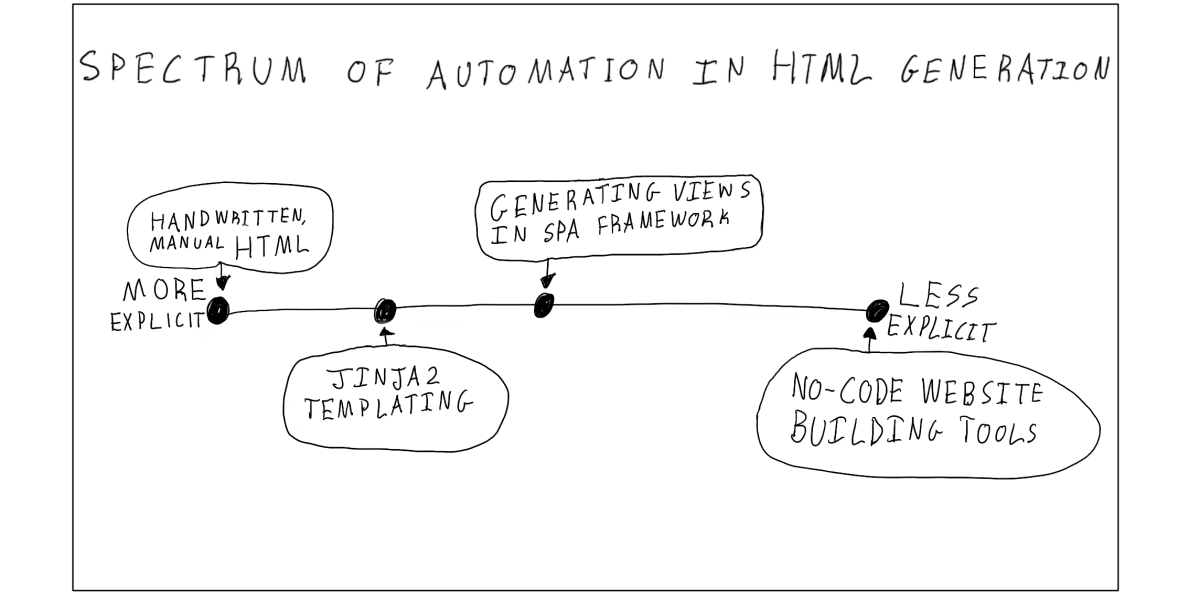 SPECTRUM OF AUTOMATION IN HTML GENERATION
HANDWRITTEN,
MANUAL HTML
GENERATING VIEWS
IN SPA FRAMEWORK
MORE
EXPLICIT
LESS
EXPLICIT
JINJA2
TEMPLATING
NO-CODE WEBSITE
BUILDING TOOLS